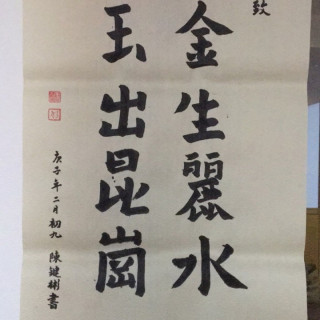 致
金生麗水
玉出昆崗
庚子年二月初九 陳建彬書